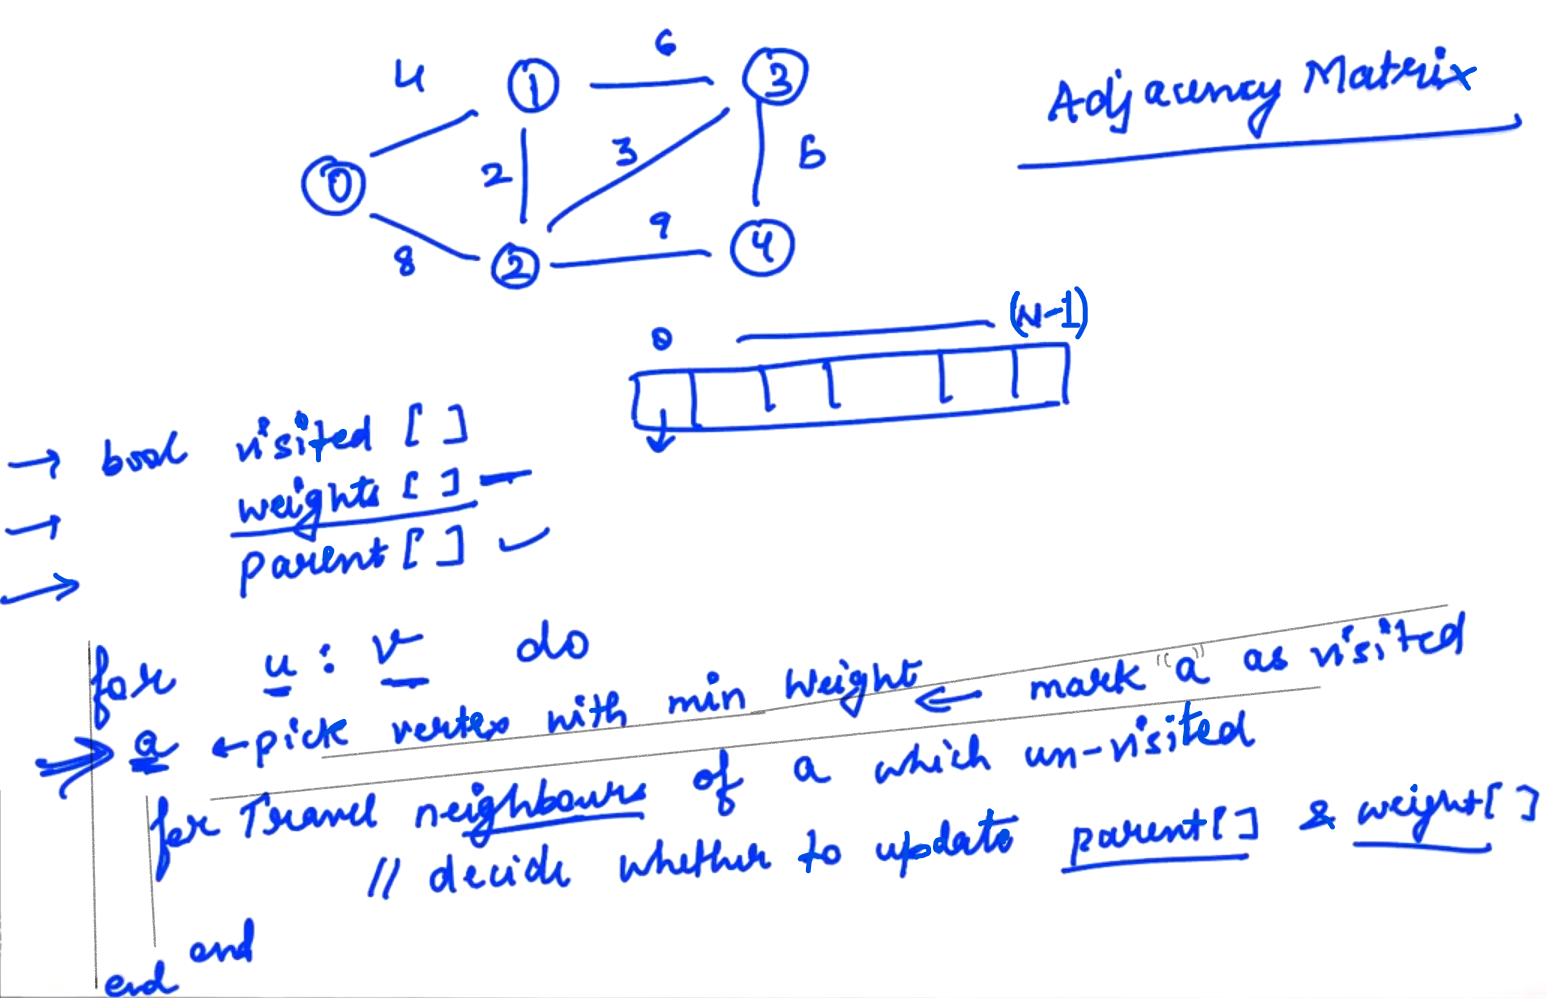 4
6
1
3
Adjacency Matrix
0
2
3
5
8
2
9
4
0
(N-1)
→ bool visited [ ]
→ weights [ ] -
→ parent [ ] ✓
for u : v do
a ← pick vertex with min weight ← mark "a" as visited
for Travel neighbours of a which un-visited
// decide whether to update parent[ ] & weight[ ]
end
end